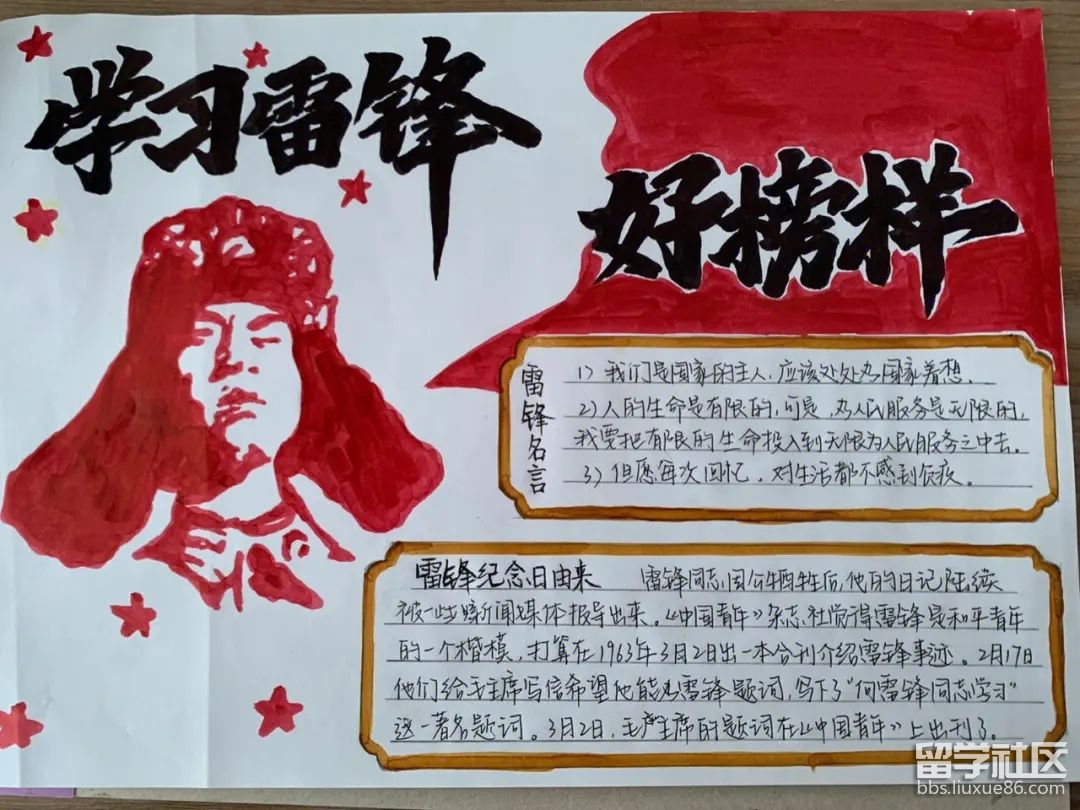 学习雷锋
好榜样
雷锋名言
1）我们是国家的主人，应该处处为国家着想。
2）人的生命是有限的，可是，为人民服务是无限的，
我要把有限的生命投入到无限为人民服务之中去。
3）但愿每次回忆，对生活都不感到负疚。
雷锋纪念日由来 雷锋同志因公牺牲后，他的日记陆续
被一些新闻媒体报导出来。《中国青年》杂志社觉得雷锋是和平青年
的一个楷模，打算在1963年3月2日出一本合刊介绍雷锋事迹。2月17日
他们给毛主席写信希望他能为雷锋题词，写下了“向雷锋同志学习”
这一著名题词。3月2日，毛主席的题词在《中国青年》上出刊了。
留学社区
bbs.liuxue86.com